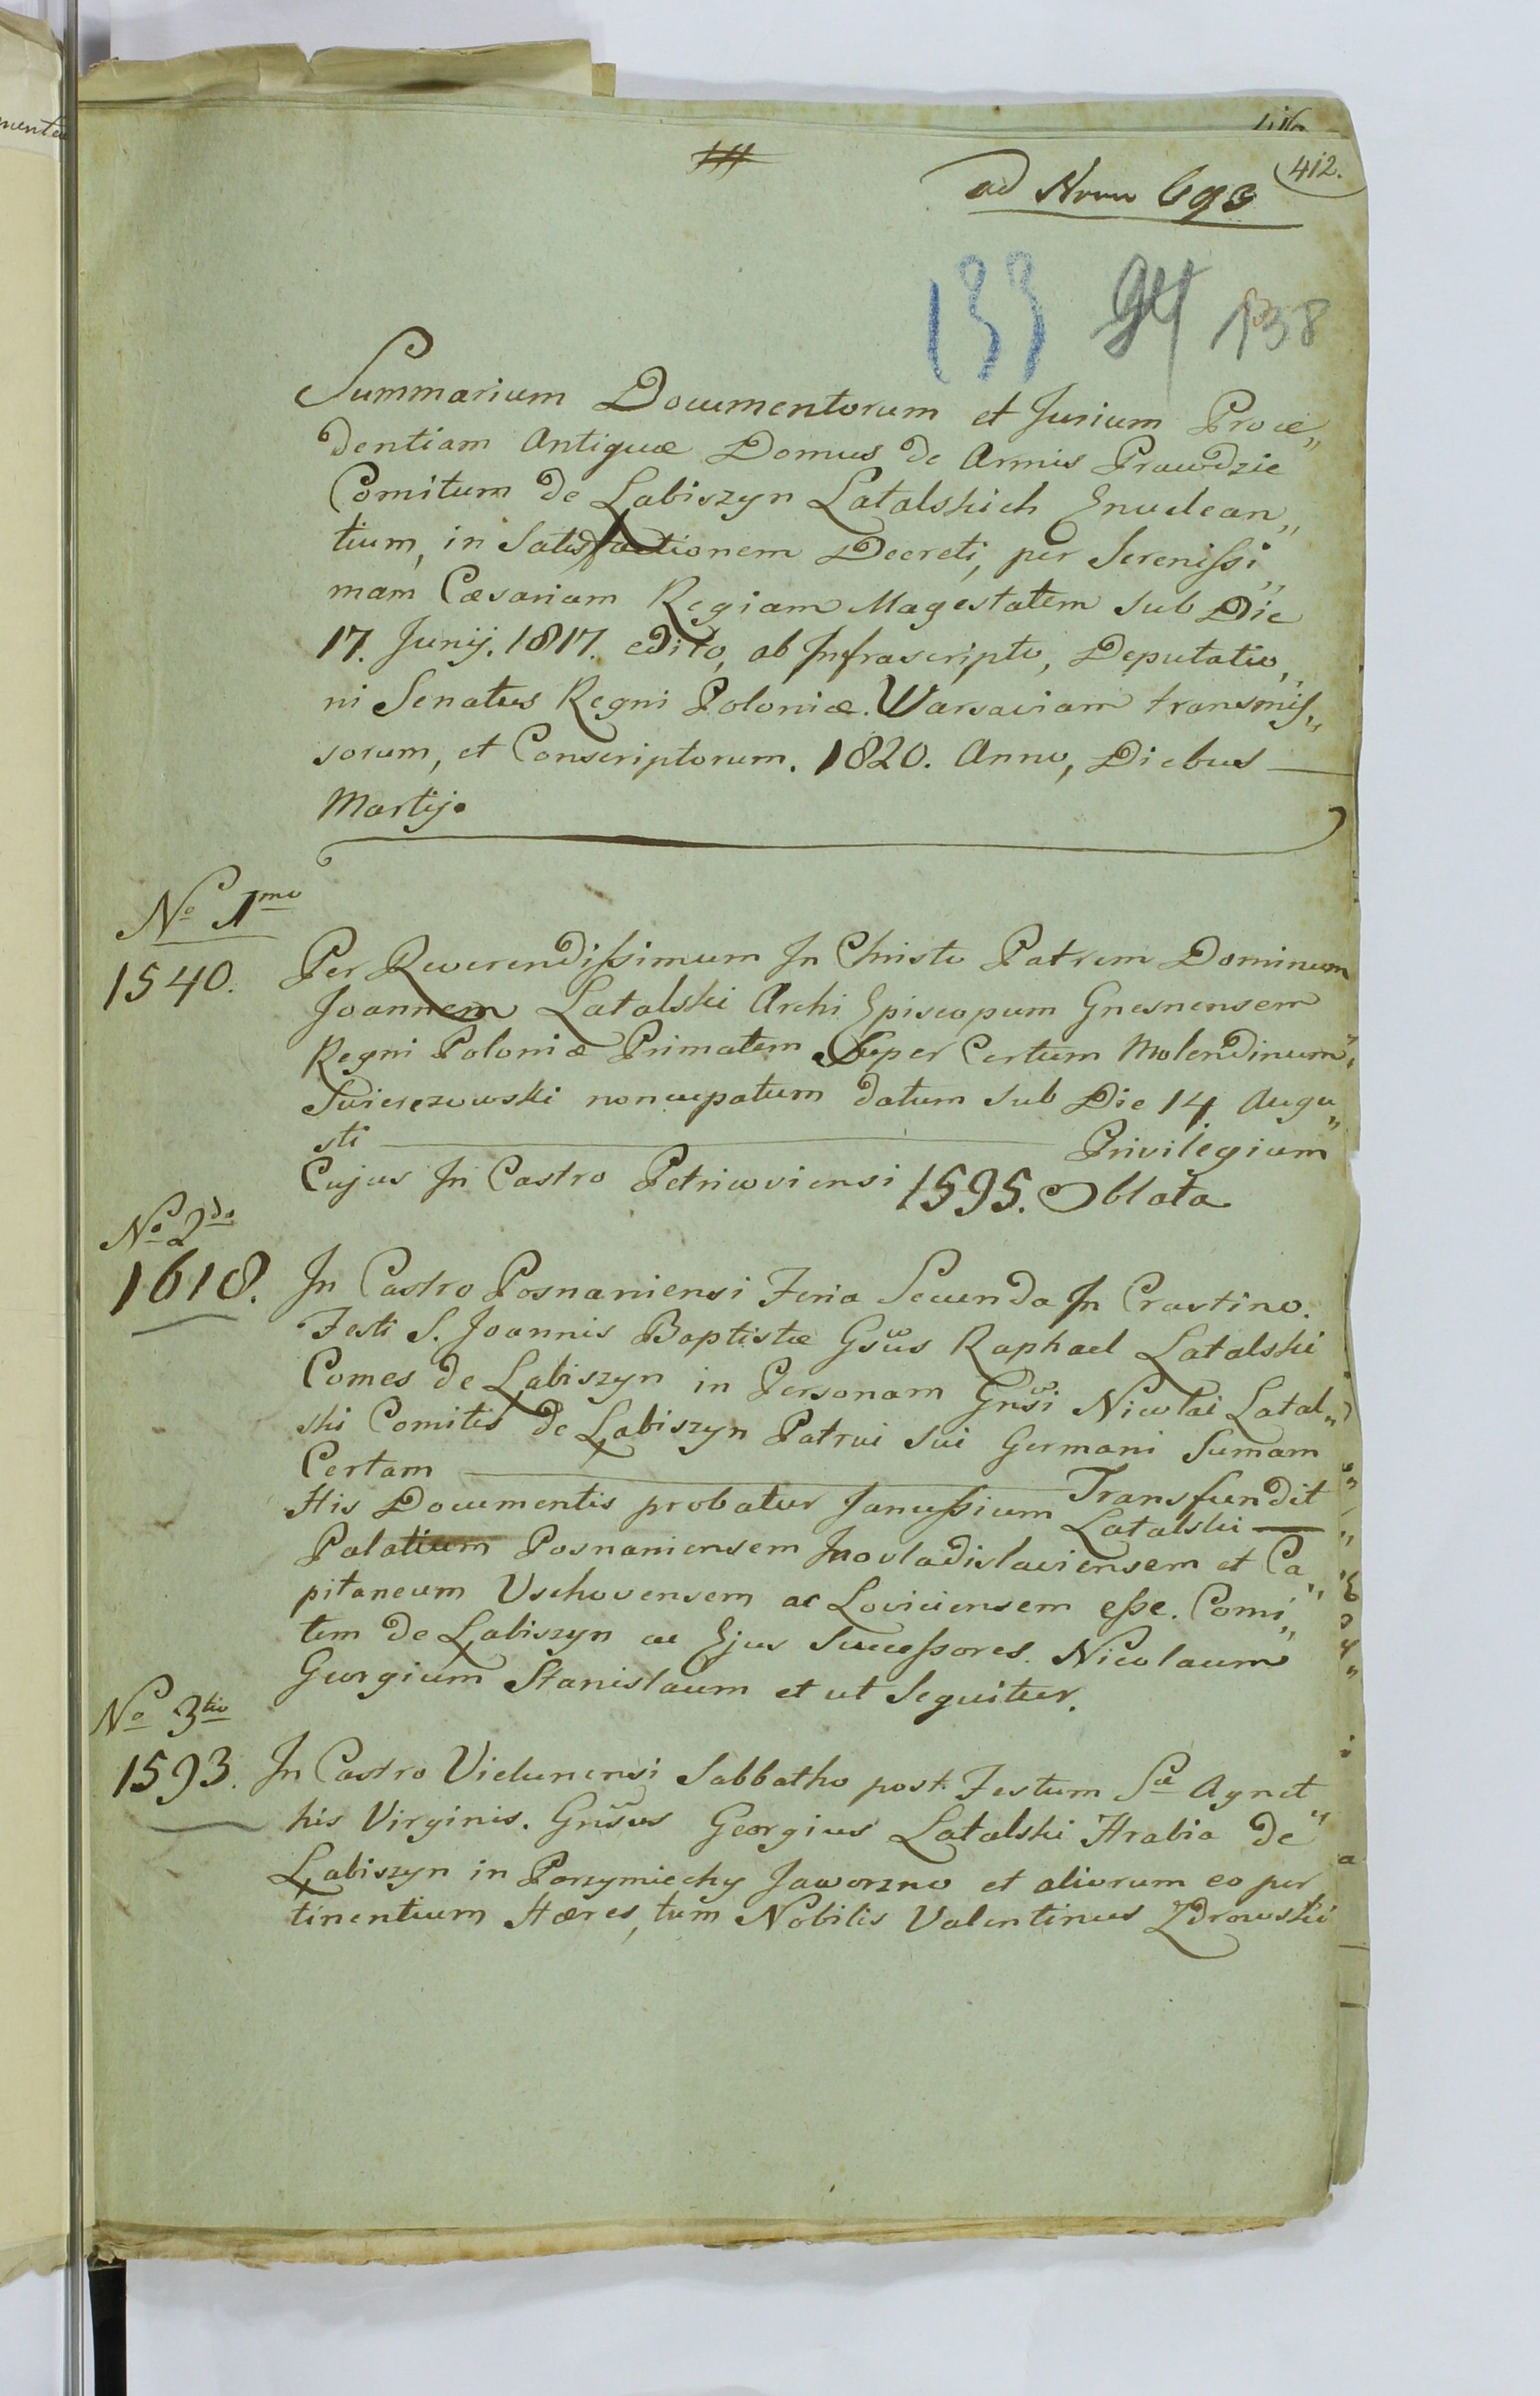 412.
ad Nrum 693
133 94 138
Summarium Documentorum et Jurium Proce„
dentiam Antiquæ Domus de Armis Prawdzic
Comitum de Łabiszyn Latalskich Enuclean„
tium, in Satisfactionem Decreti, per Sereniſsi„
mam Cæsaream Regiam Magestatem sub Die
17. Junij. 1817. edito, ab Infrascripto, Deputatio„
ni Senatus Regni Poloniæ. Varsaviam transmiſ„
sorum, et Conscriptorum. 1820. Anno, Diebus —
Martij.
No 1mo
1540. Per Reverendiſsimum In Christo Patrem Dominum
Joannem Latalski Archi Episcopum Gnesnensem
Regni Poloniæ Primatem Super Certum Molendinum„
Swierczewski noncupatum datum sub Die 14 Augu„
sti — Privilegium
Cujus In Castro Petricoviensi 1595. Oblata
No 2do
1618. In Castro Posnaniensi Feria Secunda In Crastino.
Festi S. Joannis Baptistæ Gsus Raphael Latalski
Comes de Łabiszyn in Personam Gnsi Nicolai Latal„
ski Comitis de Łabiszyn Patrui sui Germani Sumam
Certam — Transfundit
His Documentis probatur Januſsium Latalski —
Palatium Posnaniensem Inovladislaviensem et Ca„
pitaneum Vschovensem ac Loviciensem eſse. Comi„
tem de Łabiszyn ac Ejus Succeſsores. Nicolaum
Georgium Stanislaum et ut Sequitur.
No 3tio
1593. In Castro Vielunensi Sabbatho post Festum Sæ Agnet„
his Virginis. Gnsus Georgius Latalski Hrabia de
Łabiszyn in Parzymiechy Jaworzno et aliorum eo per
tinentium Hæres, tum Nobilis Valentinus Zdrowski